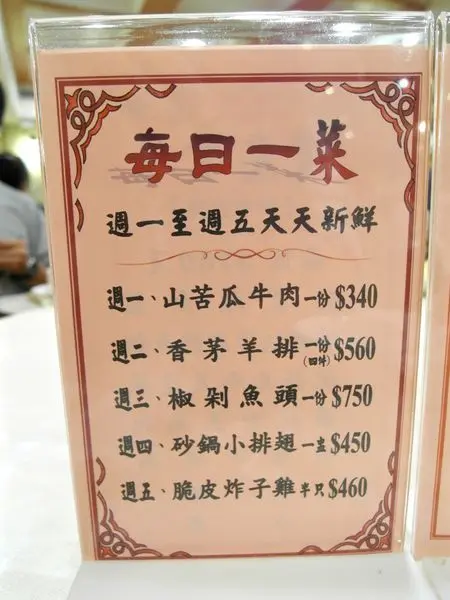 每日一菜
週一至週五天天新鮮
週一、山苦瓜牛肉一份$340
週二、香茅羊排一份(四件)$560
週三、椒剁魚頭一份$750
週四、砂鍋小排翅一盅$450
週五、脆皮炸子雞半只$460